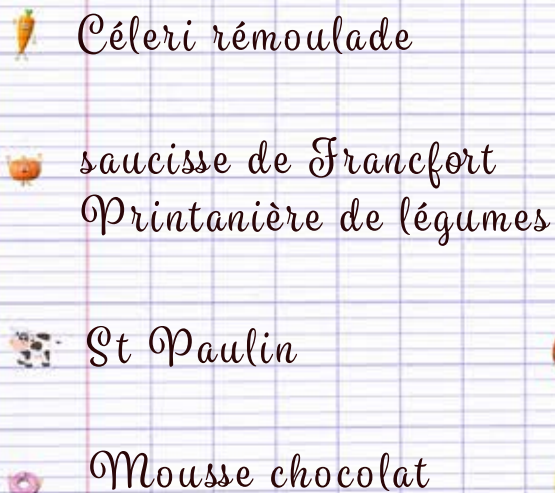 Céleri rémoulade
saucisse de Francfort
Printanière de légumes
St Paulin
Mousse chocolat